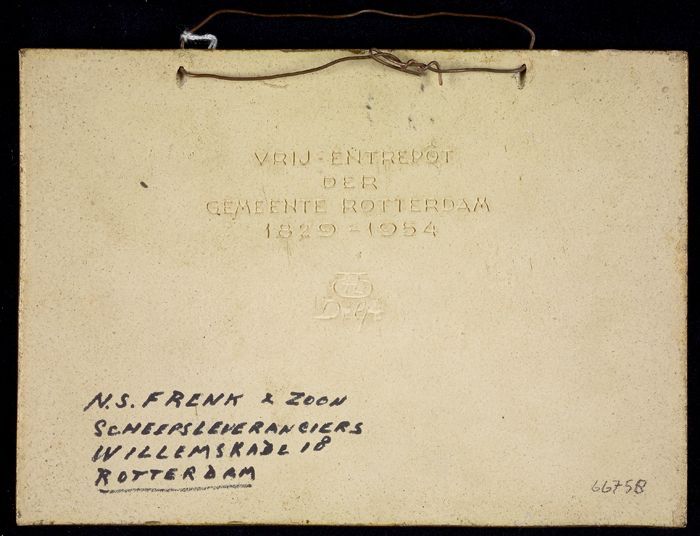 VRIJ-ENTREPÔT
DER
GEMEENTE ROTTERDAM
1829-1954
Delft
N.S. FRENK & ZOON
SCHEEPSLEVERANCIERS
WILLEMSKADE 18
ROTTERDAM
6675B